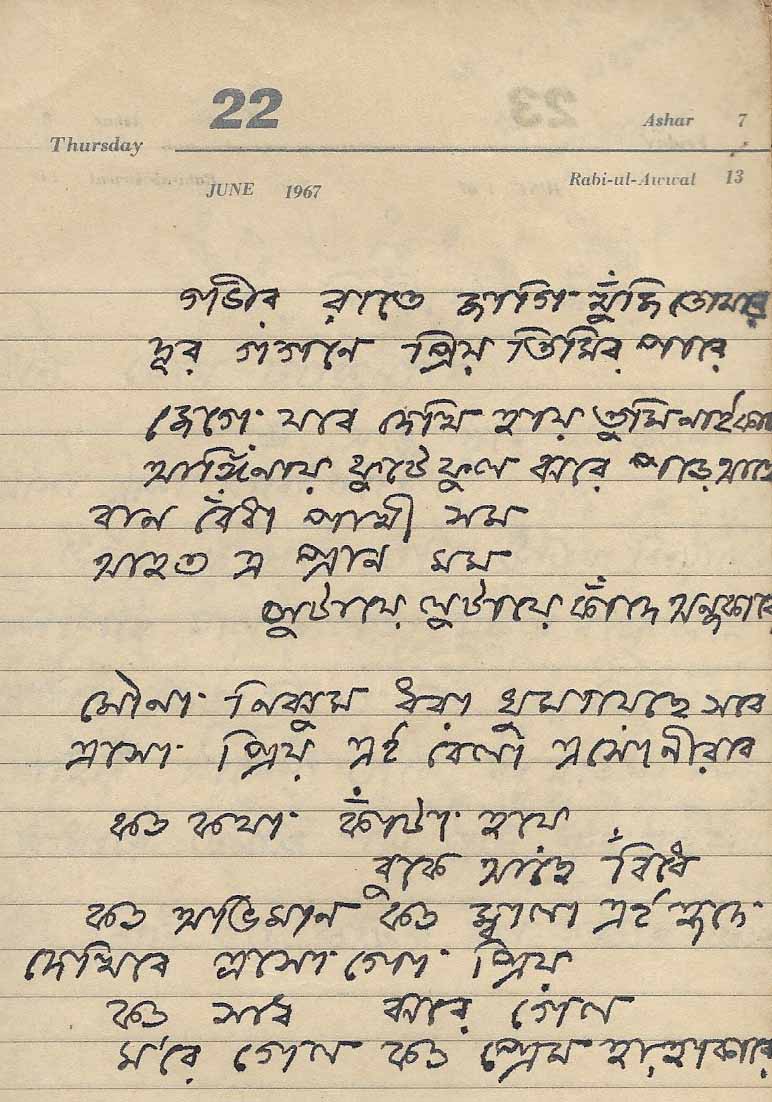 22
Ashar 7
Thursday
JUNE 1967
Rabi-ul-Awwal 13
গভীর রাতে জাগি খুঁজি তোমারে
দূর গগনে প্রিয় তিমির পারে
জেগে যবে দেখি হায় তুমি নাই কাছে
আঙ্গিনায় ফুটে ফুল ঝরে পড়ে আছে
বান বেঁধা পাখী সম
আহত এ প্রান মম
লুটায়ে লুটায়ে কাঁদে অন্ধকারে
মৌনা নিঝুম ধরা ঘুমায়েছে সবে
এসো প্রিয় এই বেলা এসো নীরবে
কত কথা কাঁটা হয়ে
বুকে আছে বিঁধে
কত অভিমান কত জ্বালা এই হৃদে
দেখিবে এসো গো প্রিয়
কত সাধ ঝরে গেল
ম'রে গেল কত প্রেম হাহাকারে